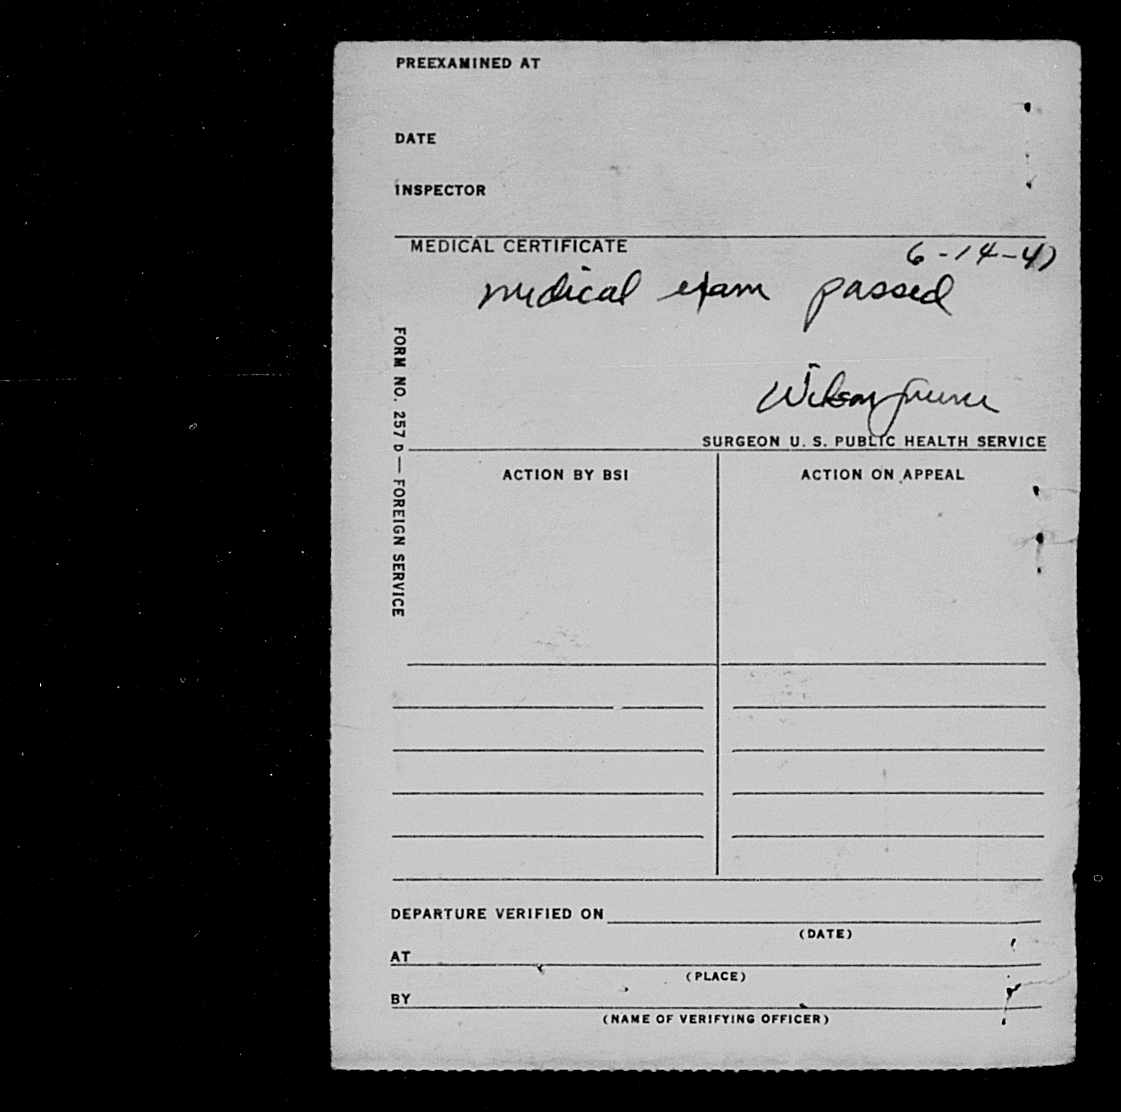 PREEXAMINED AT
DATE
INSPECTOR
MEDICAL CERTIFICATE
6-14-47
medical exam passed
Wilson
SURGEON U. S. PUBLIC HEALTH SERVICE
FORM NO. 257 D — FOREIGN SERVICE
ACTION BY BSI
ACTION ON APPEAL
DEPARTURE VERIFIED ON
(DATE)
AT
(PLACE)
BY
(NAME OF VERIFYING OFFICER)